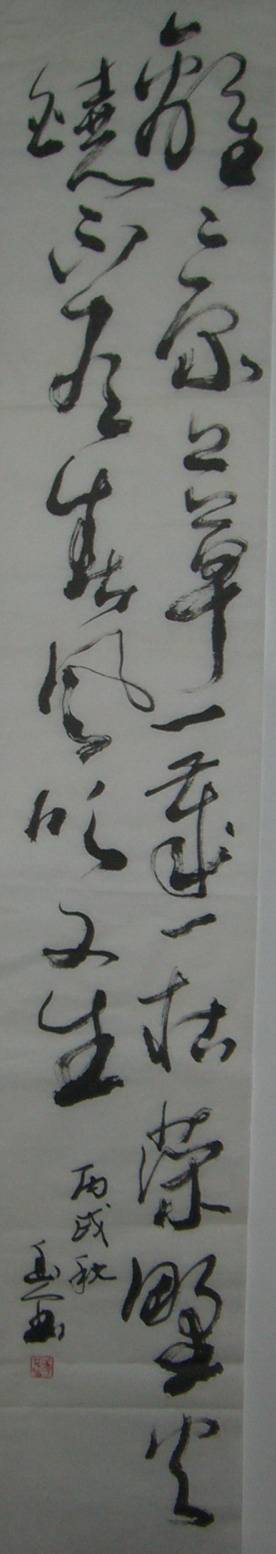 離離原上草一歲一枯榮野火
燒不尽春風吹又生
丙戌秋